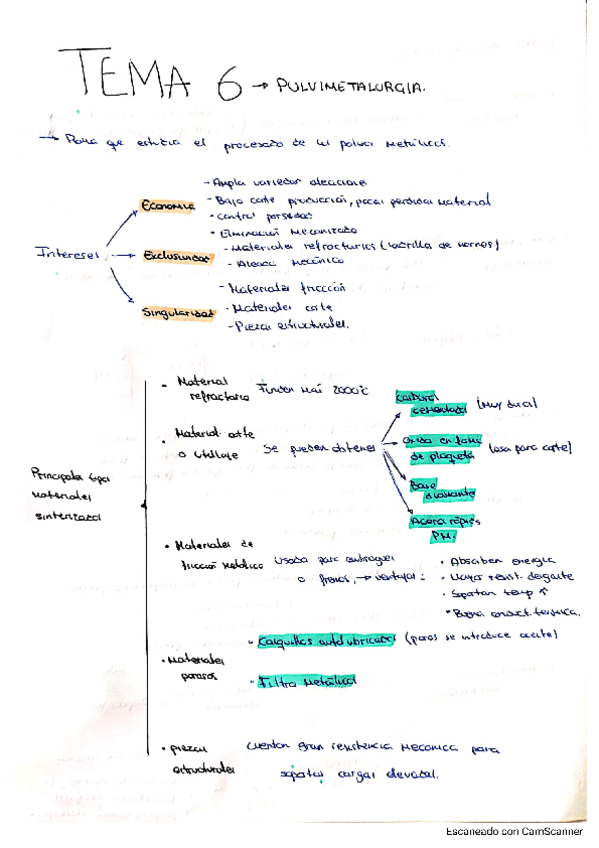 TEMA 6 → PULVIMETALURGIA.
→ Rama que estudia el procesado de los polvos metálicos.
Intereses
Economia
- Amplia variedad aleaciones
- Bajo coste producción, pocas perdidas material
• control porosidad
• Eliminación mecanizado
Exclusividad
- Materiales refractarios (ladrillo de hornos)
- Aleado mecánico
Singularidad
- Materiales fricción
- Materiales corte
- Piezas estructurales.
Principales tipos
materiales
sinterizados
• Material
refractario
Funden más 2000ºC
• Material corte
o utillaje
Se pueden obtener
carburos
cementados (muy duros)
en forma
de plaqueta (usa para corte)
Base
diamante
Aceros rápidos
PM.
• Materiales de
fricción metálico
Usados para embragues
o frenos, → ventajas:
• Absorben energía
• Mayor resist. desgaste
• Soportan temp ↑
• Buena conduct. termica.
• Materiales
porosos
• Casquillos autolubricados (poros se introduce aceite)
• Filtros metálicos
• piezas
estructurales
cuentan gran resistencia mecanica para
soportar cargas elevadas.
Escaneado con CamScanner